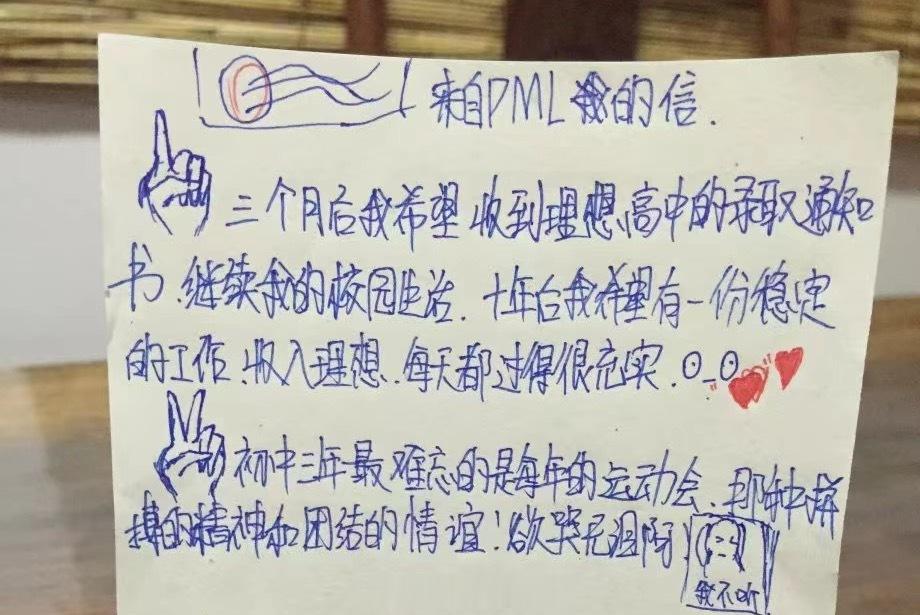 来自PML我的信.
三个月后我希望收到理想高中的录取通知
书.继续我的校园生活.十年后我希望有一份稳定
的工作、收入理想.每天都过得很充实.⊙_⊙
初中三年最难忘的是每年的运动会、那种拼
搏的精神和团结的情谊！欲哭无泪啊
我不听